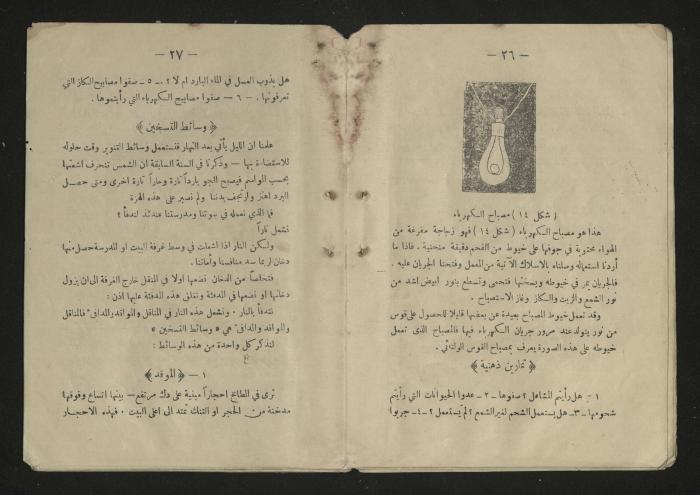 — ٢٦ —
( شكل ١٤ ) مصباح الكهرباء
هذا هو مصباح الكهرباء ( شكل ١٤ ) فهو زجاجة مفرغة من
الهواء محتوية في جوفها على خيوط من الفحم دقيقة منحنية . فاذا ما
أردنا استعماله وصلناه بالاسلاك الآتية من المعمل وفتحنا الجريان عليه .
فالجريان يمر في خيوطه ويسخنها فتحمى وتسطع بنور ابيض اشد من
نور الشمع والزيت والكاز وغاز الاستصباح .
وقد تعمل خيوط المصباح بعيدة عن بعضها قليلا للحصول على قوس
من نور يتولد عند مرور جريان الكهرباء فيها فالمصباح الذي تعمل
خيوطه على هذه الصورة يعرف بمصباح القوس الولتائي .
﴿ تمارين ذهنية ﴾
١ – هل رأيتم المشاعل ؟ صفوها – ٢ – عدوا الحيوانات التي رأيتم
شحومها – ٣ – هل يستعمل الشحم لغير الشمع ؟ لم يستعمل ؟ – ٤ – جربوا
— ٢٧ —
هل يذوب العسل في الماء البارد ام لا ؟ . – ٥ – صفوا مصابيح الكاز التي
تعرفونها . – ٦ – صفوا مصابيح الكهرباء التي رأيتموها .
﴿ وسائط التسخين ﴾
علمنا ان الليل يأتي بعد النهار فنستعمل وسائط التنوير وقت حلوله
للاستضاءة بها – وذكرنا في السنة السابقة ان الشمس تنحرف اشعتها
بحسب المواسم فيصبح الجو بارداً تارة وحاراً تارة اخرى ومتى حصل
البرد اهتز وارتجف بدننا ولم نصبر على هذه الهزة
فما الذي نعمله في بيوتنا ومدرستنا عندئذ لندفأ ؟
نشعل ناراً
ولكن النار اذا اشعلت في وسط غرفة البيت او المدرسة حصل منها
دخان لربما سد منافسنا وأماتنا .
فتخلصاً من الدخان نضعها اولا في المنقل خارج الغرفة الى ان يزول
دخانها او نضعها في المدفئة ونغلق هذه المدفئة عليها اذن :
نتدفأ بالنار . ونشعل هذه النار في المناقل والمواقد والمدافئ فالمناقل
والمواقد والمدافئ هي « وسائط التسخين »
لنذكر كل واحدة من هذه الوسائط :
١ – ﴿ الموقد ﴾
نرى في المطابخ احجاراً مبنية على دك مرتفع – بينها اتساع وفوقها
مدخنة من الحجر او التنك تمتد الى اعلى البيت . فهذه الاحجار